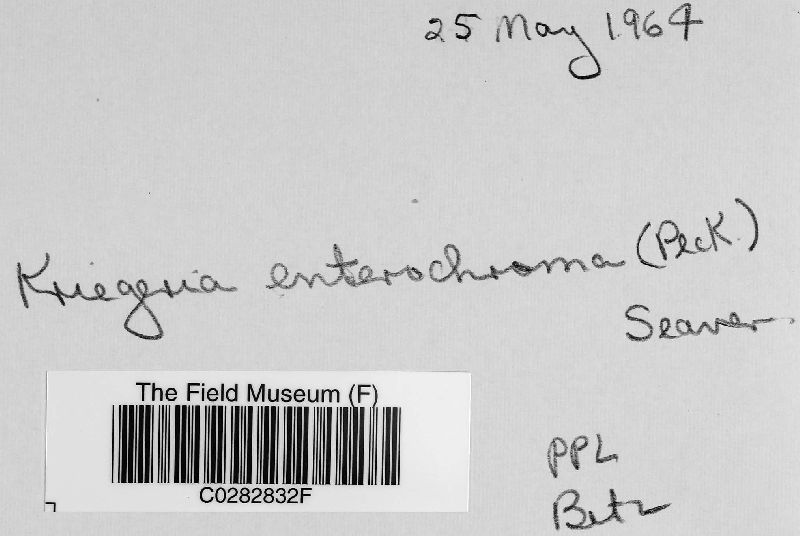 25 May 1964
Kriegeria enterochroma (Peck.)
Seaver
The Field Museum (F)
C0282832F
PPL
Betz